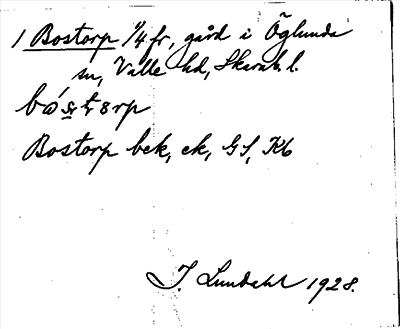 1 Bostorp 1/4 fr, gård i Öglunda
sn, Valle hd, Skarab. l.
Bostorp bek, ek, GS, Kb
I. Lundahl 1928.